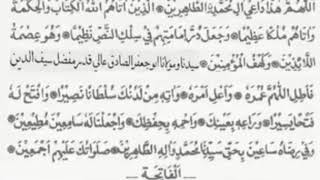 اللّٰهُمَّ هٰذَا دَاعِي آلِ مُحَمَّدٍ الطَّاهِرِينَ ۞ الَّذِينَ آتَاهُمُ اللّٰهُ الْكِتَابَ وَالْحِكْمَةَ
وَآتَاهُمْ مُلْكًا عَظِيمًا ۞ وَجَعَلَ إِمَامَتَهُمْ فِي سِلْكِ النَّصِّ نَظِيمًا ۞ وَهُوَ عِصْمَةُ
اللَّائِذِينَ ۞ وَكَهْفُ الْمُؤْمِنِينَ ۞ سيدنا ومولانا ابو جعفر الصادق عالي قدر مفضل سيف الدين
فَأَطِلِ اللّٰهُمَّ عُمْرَهُ ۞ وَأَعْلِ أَمْرَهُ ۞ وَآتِهِ مِنْ لَدُنْكَ سُلْطَانًا نَصِيرًا ۞ وَافْتَحْ لَهُ
فَتْحًا يَسِيرًا ۞ وَرَاعِهِ بِعَيْنِكَ ۞ وَاحْمِهِ بِحِفْظِكَ ۞ وَاجْعَلْنَا لَهُ سَامِعِينَ مُطِيعِينَ ۞
وَفِي رِضَاهُ سَاعِينَ بِحَقِّ سَيِّدِنَا مُحَمَّدٍ وَآلِهِ الطَّاهِرِينَ ۞ صَلَوَاتُكَ عَلَيْهِمْ أَجْمَعِينَ ۞
الْفَاتِحَةَ